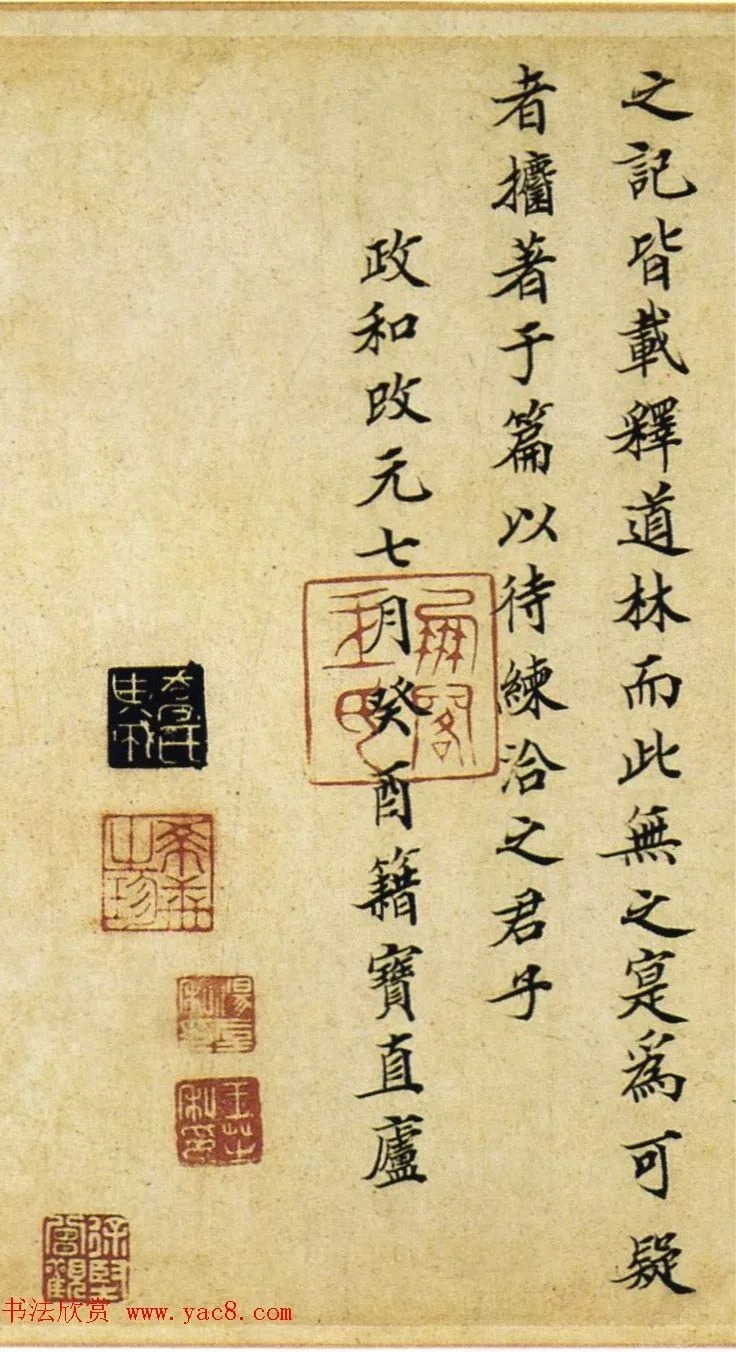 之記皆載釋道林而此無之寔爲可疑
者攟著于篇以待練洽之君子
政和改元七月癸酉籍寶直廬
王芷
私印
書法欣赏 www.yac8.com